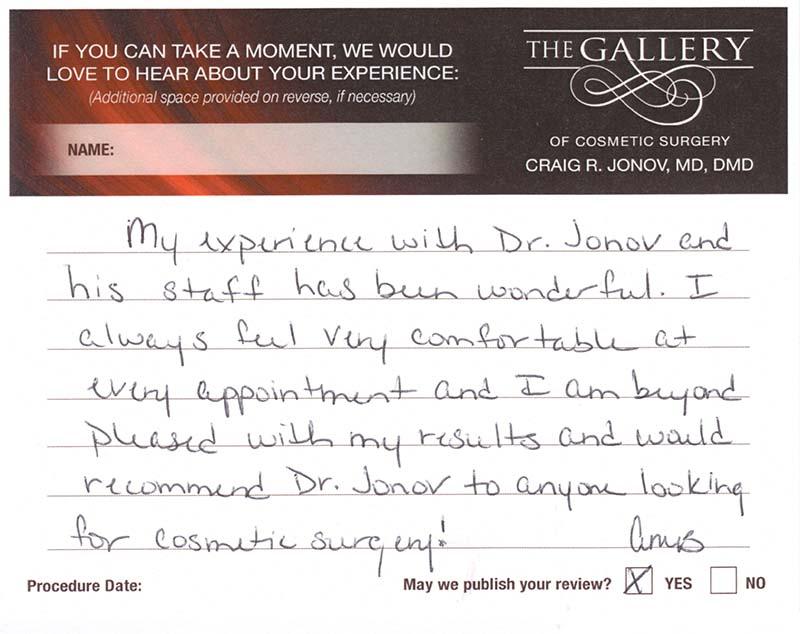 IF YOU CAN TAKE A MOMENT, WE WOULD
LOVE TO HEAR ABOUT YOUR EXPERIENCE:
(Additional space provided on reverse, if necessary)
NAME:
THE GALLERY
OF COSMETIC SURGERY
CRAIG R. JONOV, MD, DMD
My experience with Dr. Jonov and
his staff has been wonderful. I
always feel very comfortable at
every appointment and I am beyond
pleased with my results and would
recommend Dr. Jonov to anyone looking
for cosmetic surgery!
Procedure Date:
May we publish your review? X YES NO